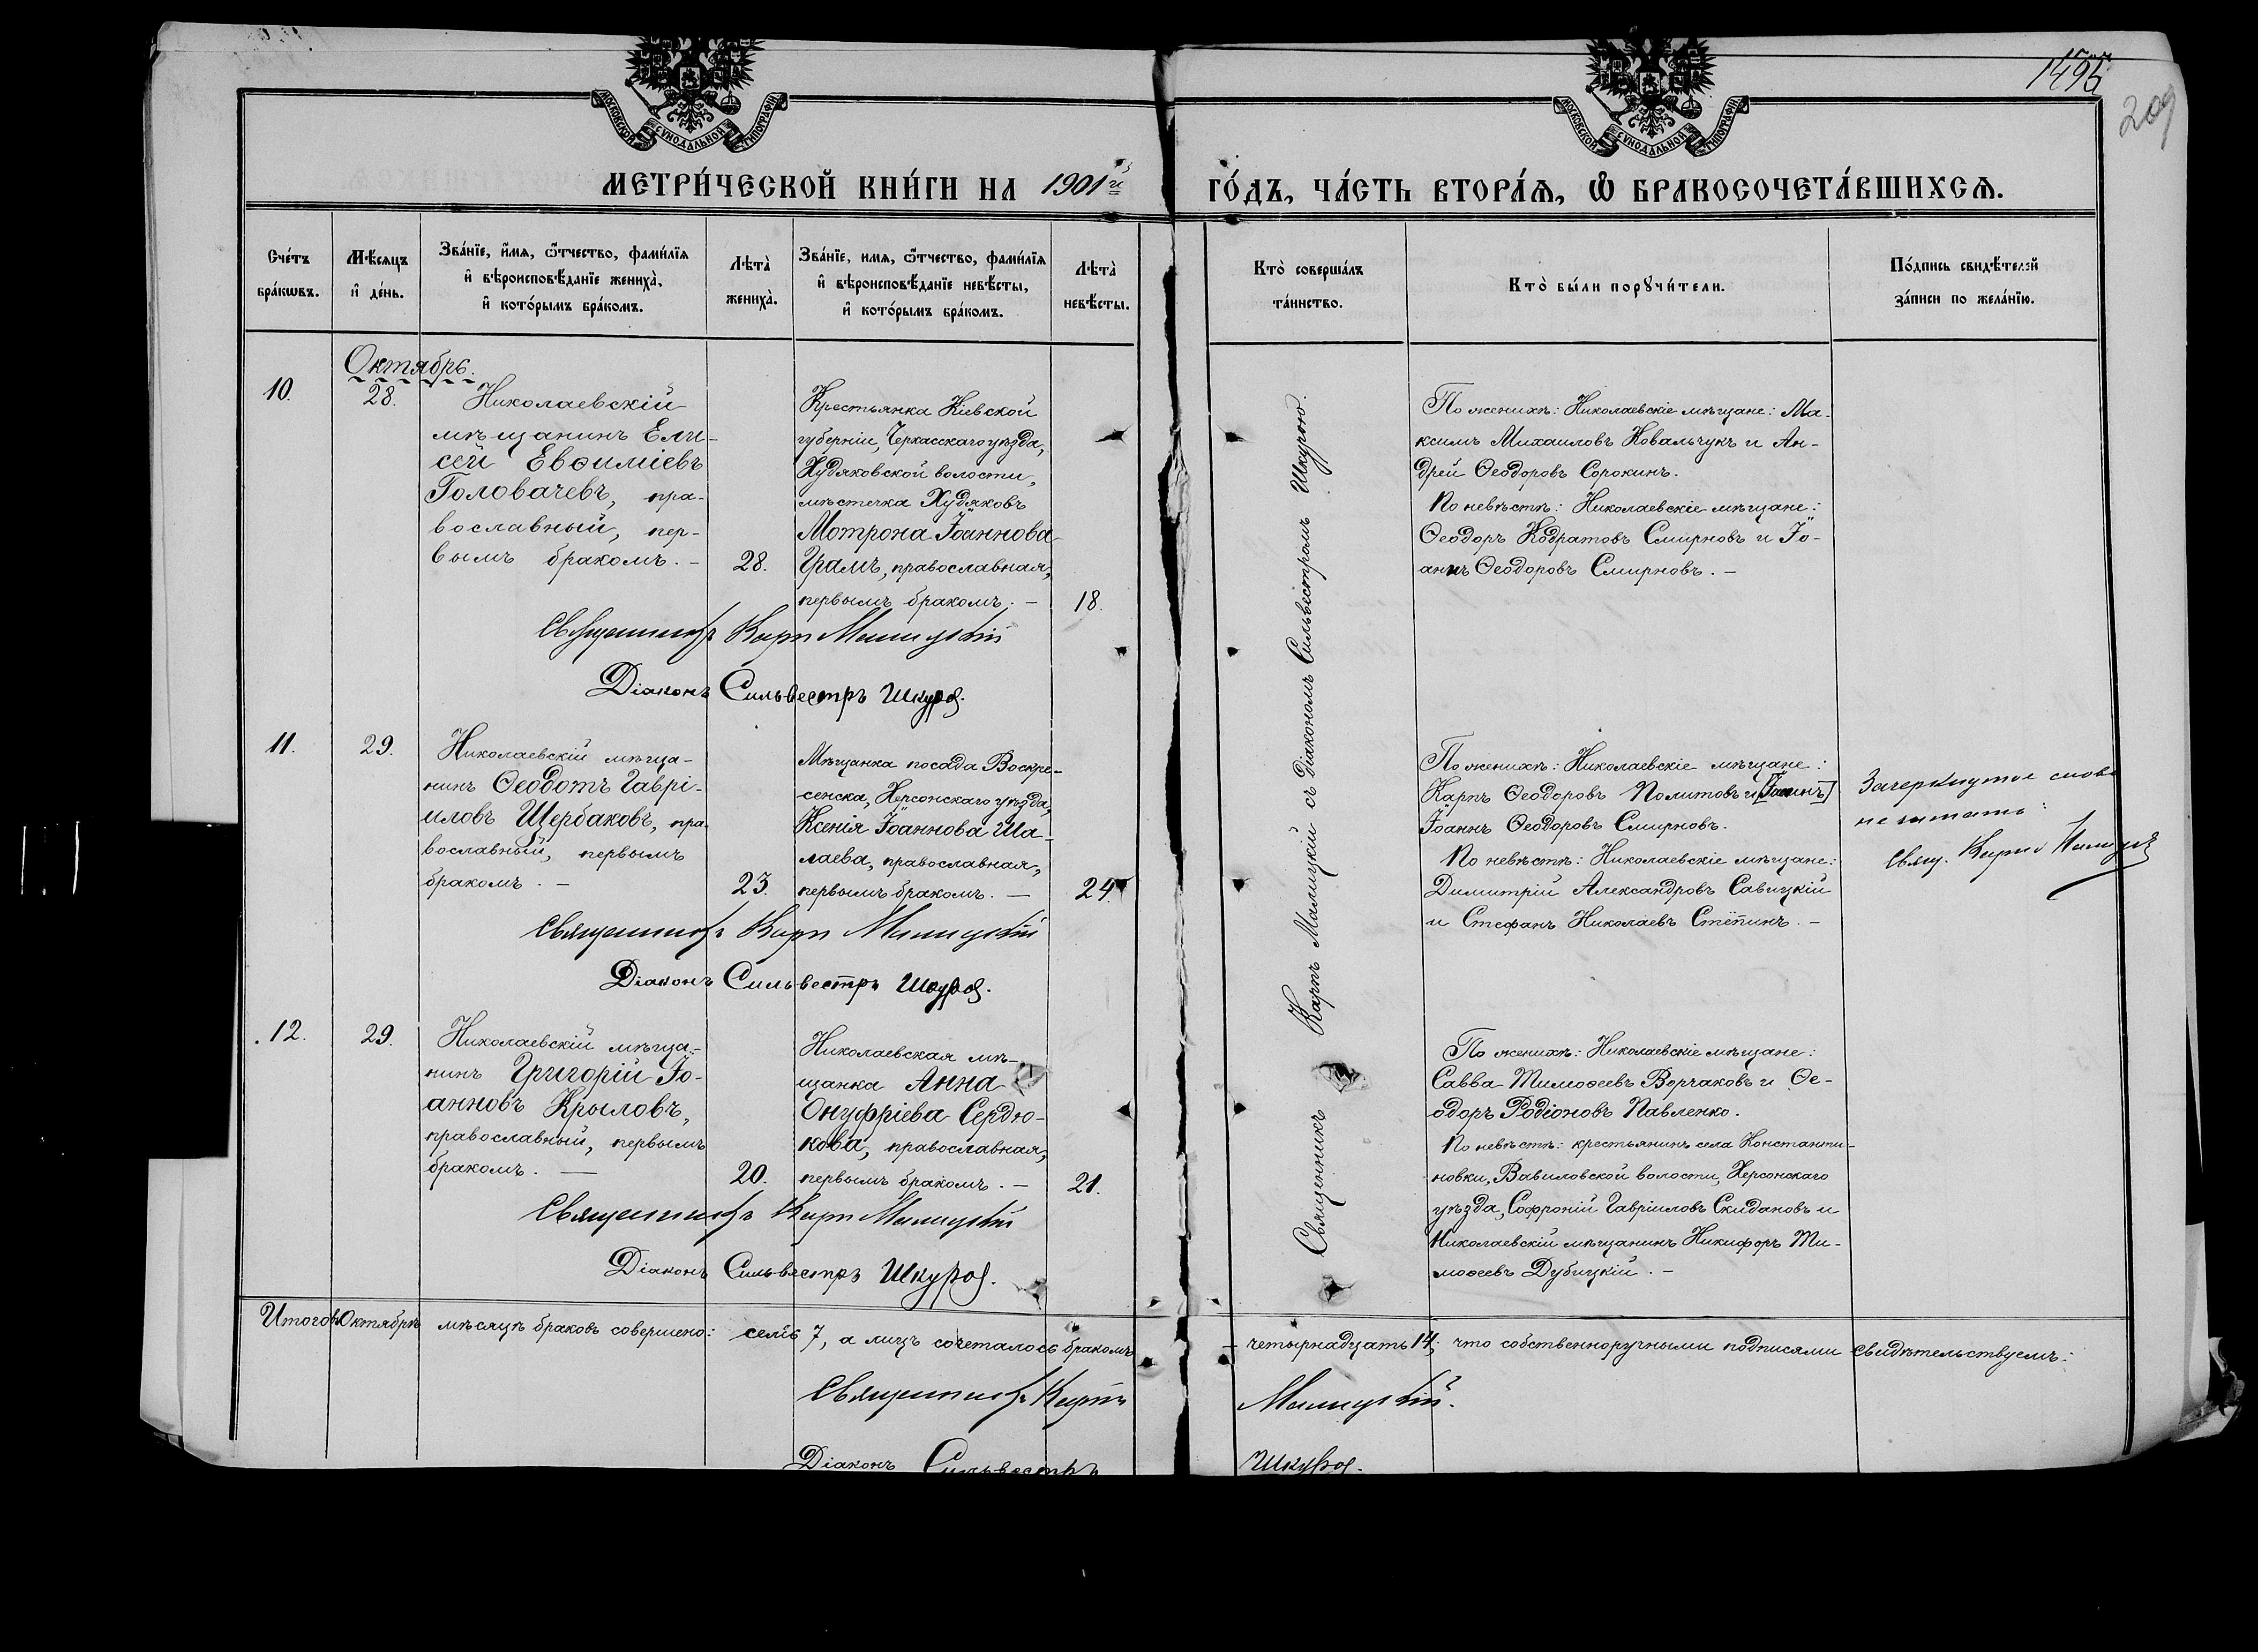 1495
209
МОСКОВСКОЙ СУНОДАЛЬНОЙ ТИПОГРАФІИ
МОСКОВСКОЙ СУНОДАЛЬНОЙ ТИПОГРАФІИ
МЕТРИ́ЧЕСКОЙ КНИ́ГИ НА 1901й ГО́ДЪ, ЧА́СТЬ ВТОРА́Я, Ѡ БРАКОСОЧЕТА́ВШИХСЯ.
Сче́тъ бра́кѡвъ.
Мѣ́сяцъ и де́нь.
Зва́нїе, и́мя, ѻ́тчество, фами́лїя
и вѣроисповѣ́данїе жениха̀,
и кото́рымъ бра́комъ.
Лѣта̀ жениха̀.
Зва́нїе, имя, ѻ́тчество, фами́лїя
и вѣроисповѣ́данїе невѣ́сты,
и кото́рымъ бра́комъ.
Лѣта̀ невѣ́сты.
Кто̀ соверша́лъ
та́инство.
Кто̀ бы́ли порꙋчи́тели.
По́дпись свидѣ́телей
за́писи по жела́нїю.
Октябрь.
10.
28.
Николаевскій
мѣщанинъ Ели-
сей Евѳиміевъ
Головачевъ, пра-
вославный, пер-
вымъ бракомъ. –
28.
Крестьянка Кіевской
губерніи, Черкасскаго уѣзда,
Худяковской волости,
мѣстечка Худяковъ
Мотрона Іоаннова
Грамъ, православная,
первымъ бракомъ. –
18.
Священникъ Карпъ Малицкій
Діаконъ Сильвестръ Шкуро.
Священникъ Карпъ Малицкій съ діакономъ Сильвестромъ Шкурою.
По женихѣ: Николаевскіе мѣщане: Ма-
ксимъ Михаиловъ Ковальчукъ и Ан-
дрей Ѳеодоровъ Сорокинъ.
По невѣстѣ: Николаевскіе мѣщане:
Ѳеодоръ Кодратовъ Смирновъ и Іо-
аннъ Ѳеодоровъ Смирновъ. –
11.
29.
Николаевскій мѣща-
нинъ Ѳеодотъ Гаврі-
иловъ Щербаковъ, пра-
вославный, первымъ
бракомъ. –
23.
Мѣщанка посада Воскре-
сенска, Херсонскаго уѣзда,
Ксенія Іоаннова Ша-
лаева, православная,
первымъ бракомъ. –
24.
Священникъ Карпъ Малицкій
Діаконъ Сильвестръ Шкуро.
По женихѣ: Николаевскіе мѣщане:
Карпъ Ѳеодоровъ Политовъ и [Іоаннъ]
Іоаннъ Ѳеодоровъ Смирновъ.
По невѣстѣ: Николаевскіе мѣщане:
Димитрій Александровъ Савицкій
и Стефанъ Николаевъ Стёпинъ. –
Зачеркнутое слово
не читать:
Свящ. Карпъ Малицкій
12.
29.
Николаевскій мѣща-
нинъ Григорій Іо-
анновъ Крыловъ,
православный, первымъ
бракомъ. –
20.
Николаевская мѣ-
щанка Анна
Онуфріева Сердю-
кова, православная,
первымъ бракомъ. –
21.
Священникъ Карпъ Малицкій
Діаконъ Сильвестръ Шкуро.
По женихѣ: Николаевскіе мѣщане:
Савва Тимоѳеевъ Ворчаковъ и Ѳе-
одоръ Родіоновъ Павленко.
По невѣстѣ: крестьянинъ села Константи-
новки, Вавиловской волости, Херсонскаго
уѣзда, Софроній Гавріиловъ Скидановъ и
Николаевскій мѣщанинъ Никифоръ Ти-
моѳеевъ Дубицкій. –
Итого въ Октябрѣ мѣсяцѣ браковъ совершено: семь 7, а лицъ сочеталось бракомъ – четырнадцать 14; что собственноручными подписями свидѣтельствуемъ:
Священникъ Карпъ Малицкій.
Діаконъ Сильвестръ Шкуро.